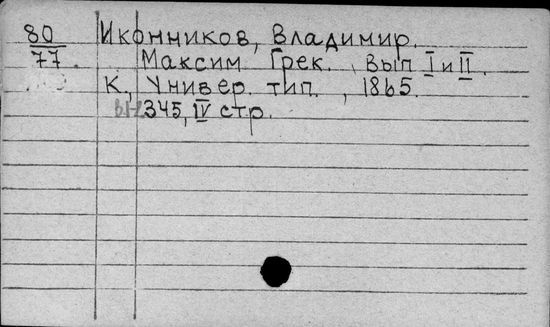 80 Иконников, Владимир.
77. Максим Грек., Вып I и II.
К, Универ. тип., 1865.
345, IV стр.